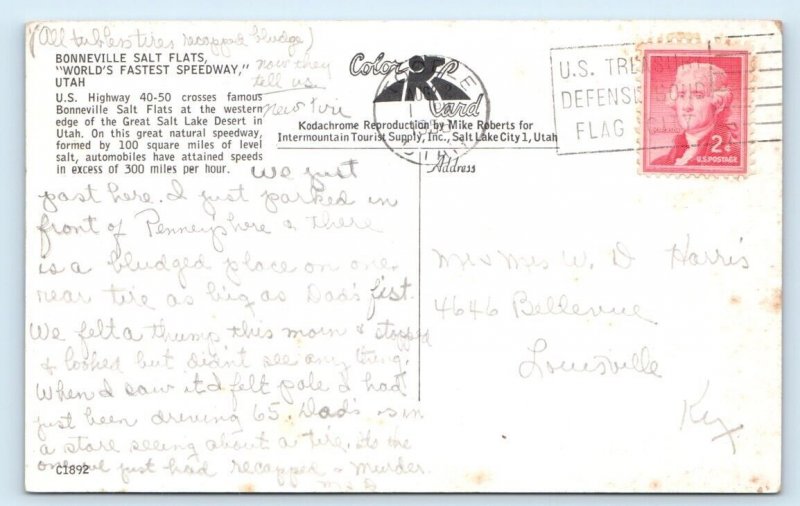 (All tubless tires recapped bludge)
now they
tell us.
BONNEVILLE SALT FLATS,
"WORLD'S FASTEST SPEEDWAY,"
UTAH
U.S. Highway 40-50 crosses famous
Bonneville Salt Flats at the western
edge of the Great Salt Lake Desert in
Utah. On this great natural speedway,
formed by 100 square miles of level
salt, automobiles have attained speeds
in excess of 300 miles per hour.
Color Card
Kodachrome Reproduction by Mike Roberts for
Intermountain Tourist Supply, Inc., Salt Lake City 1, Utah
Address
U.S. TREASURY
DEFENSE BONDS
FLAG
2¢
U.S. POSTAGE
We just
past here. I just parked in
front of Penney's here & there
is a bludged place on one
rear tire as big as Dad's fist.
We felt a thump this morn & stopped
& looked but didn't see any thing.
When I saw it I felt pale I had
just been driving 65. Dad's is in
a store seeing about a tire. its the
one we just had recapped - murder.
Mrs W. D Harris
4646 Bellevue
Louisville
Ky
C1892